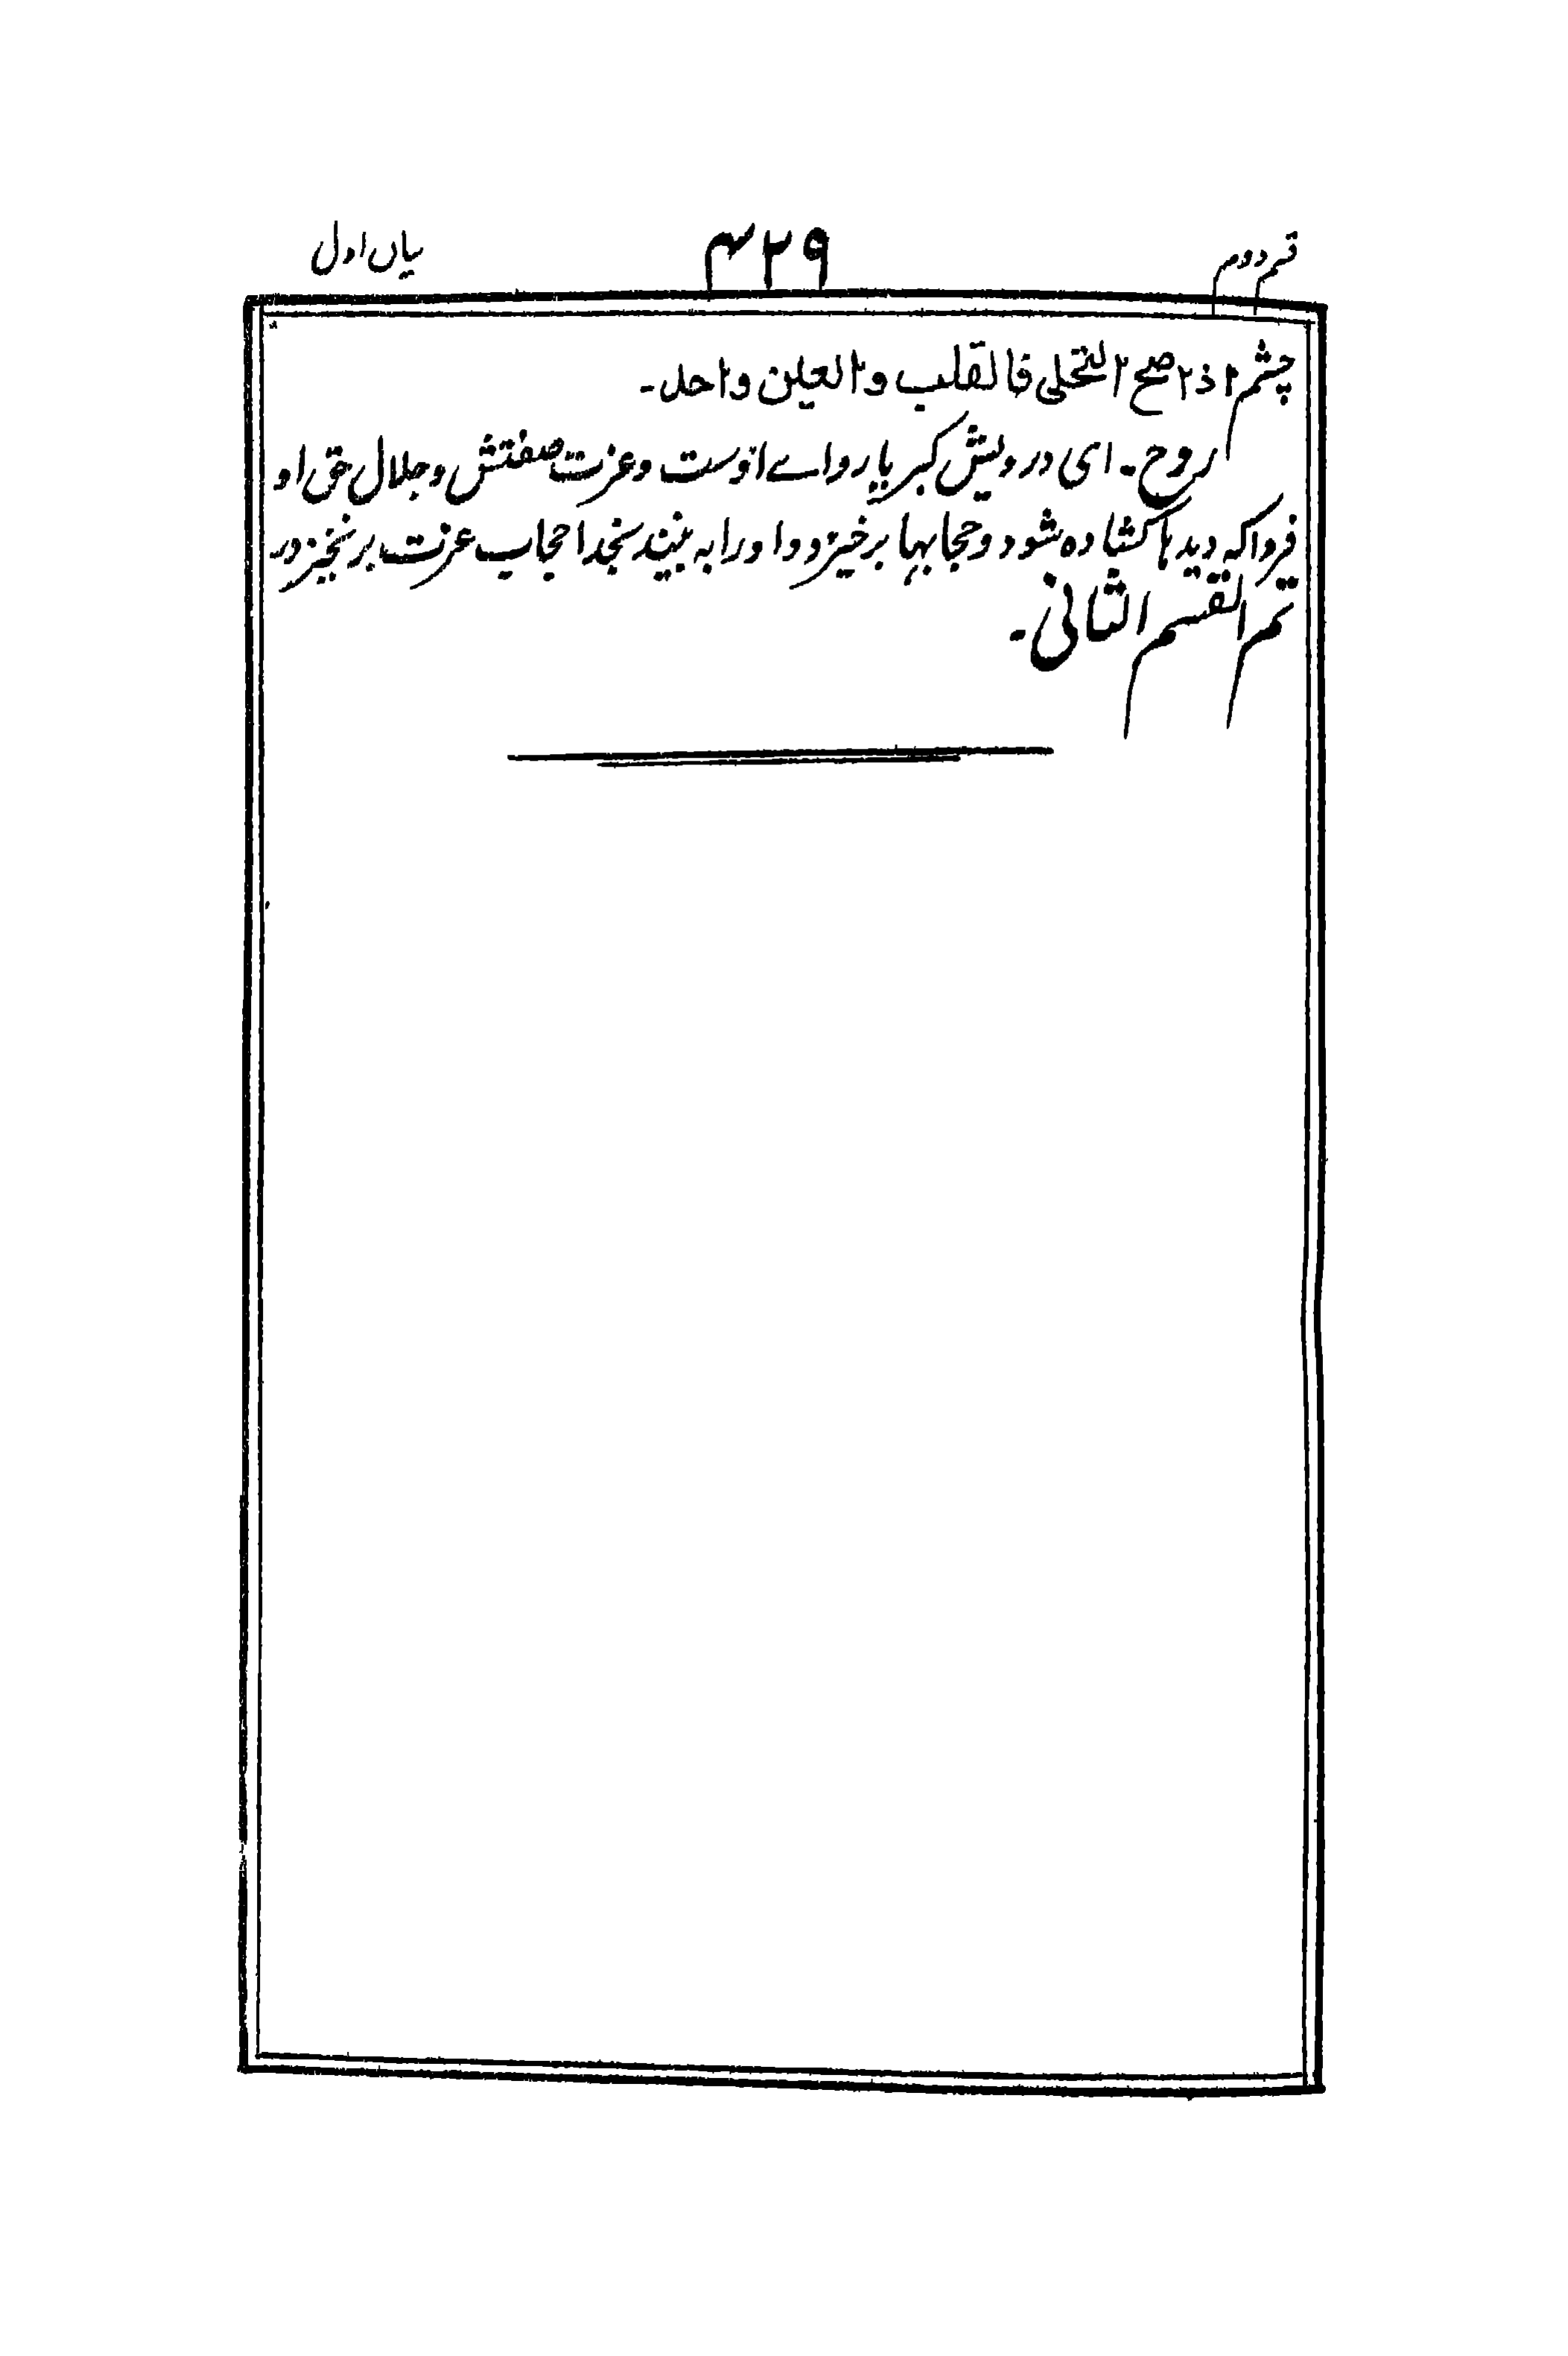 قسم دوم ۴۲۹ بیاں اول
چشم اذا صح التجلی فالقلب والعین واحد۔
روح۔ ای درویش کبریا رواے اوست و عزت صفتش و جلال حق او
فردا که دیدها کشاده شود و حجابها برخیزد و او را به بینند بخدا حجاب عزت برنخیزد
تم القسم الثانی۔